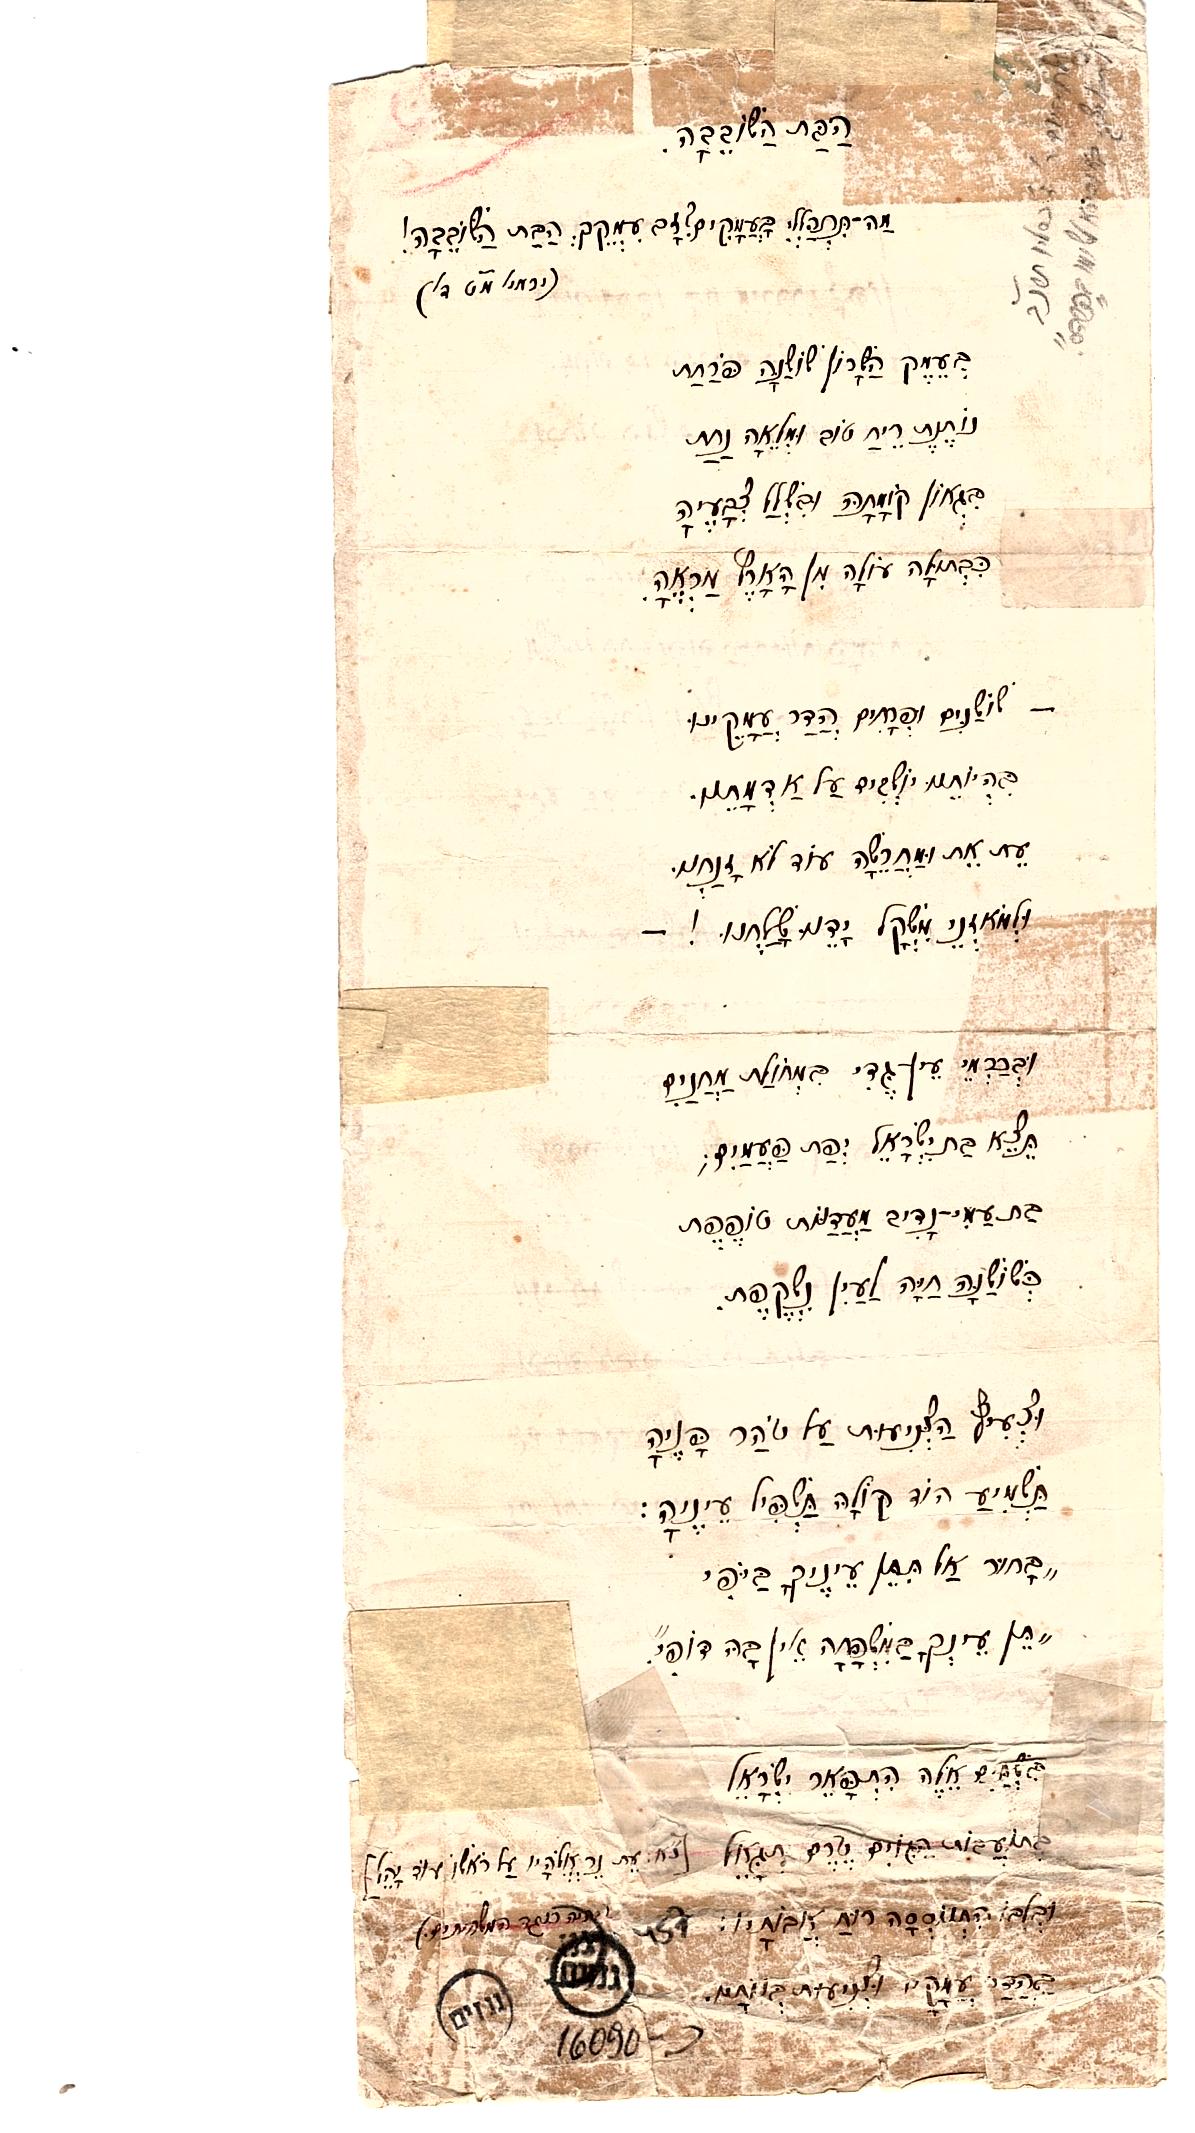 הַבַּת הַשּׁוֹבֵבָה.
מַה-תִּתְהַלְלִי בָּעֲמָקִים זָב עִמְקֵךְ הַבַּת הַשּׁוֹבֵבָה!
(ירמיה מ"ט ד')
בְּעֵמֶק הַשָּׁרוֹן שׁוֹשַׁנָּה פֹּרַחַת
נוֹתֶנֶת רֵיחַ טוֹב וּמְלֵאָה נַחַת
בִּגְאוֹן קוֹמָתָהּ וּבִשְׁלַל צְבָעֶיהָ
כִּבְתוּלָה עוֹלָה מִן הָאָרֶץ מַרְאֶהָ.
— שׁוֹשַׁנִּים וּפְרָחִים הֲדַר עֲמָקֵינוּ
בִּהְיוֹתֵנוּ יוֹשְׁבִים עַל אַדְמָתֵנוּ.
עֵת אֵת וּמַחֲרֵשָׁה עוֹד לֹא זָנַחְנוּ.
וּלְמֹאזְנֵי מִשְׁקָל יָדֵנוּ שָׁלַחְנוּ ! —
וּבְכַרְמֵי עֵין-גֶּדִי בִּמְחוֹלַת מַחֲנַיִם
תֵּצֵא בַּת יִשְׂרָאֵל יְפַת הַפַּעֲמַיִם;
בַּת עַמִּי-נָדִיב מַעֲדַנּוֹת טוֹפֶפֶת
כְּשׁוֹשַׁנָּה חַיָּה לַעַיִן נִשְׁקֶפֶת.
וּצְעִיף הַצְּנִיעוּת עַל טֹהַר פָּנֶיהָ
תַּשְׁמִיעַ הוֹד קוֹלָהּ תַּשְׁפִּיל עֵינֶיהָ:
„בָּחוּר אַל תִּתֵּן עֵינֶיךָ בַּיֹּפִי
„תֵּן עֵינְךָ בַּמִּשְׁפָּחָה אֵין בָּהּ דּוֹפִי".
אֵלֶּה הִתְפָּאֵר יִשְׂרָאֵל
בְּתוֹעֲבוֹת הַגּוֹיִם טֶרֶם נִגְאַל
[נ"א: עֵת נֵר אֱלֹהָיו עַל רֹאשׁוֹ עוֹד יָהֵל]
וּבְלִבּוֹ הִתְנוֹסְסָה רוּחַ אֲבוֹתָיו:
בַּהֲדַר עֲמָקָיו וּצְנִיעוּת בְּנוֹתָיו.
גנזים
גנזים
16090